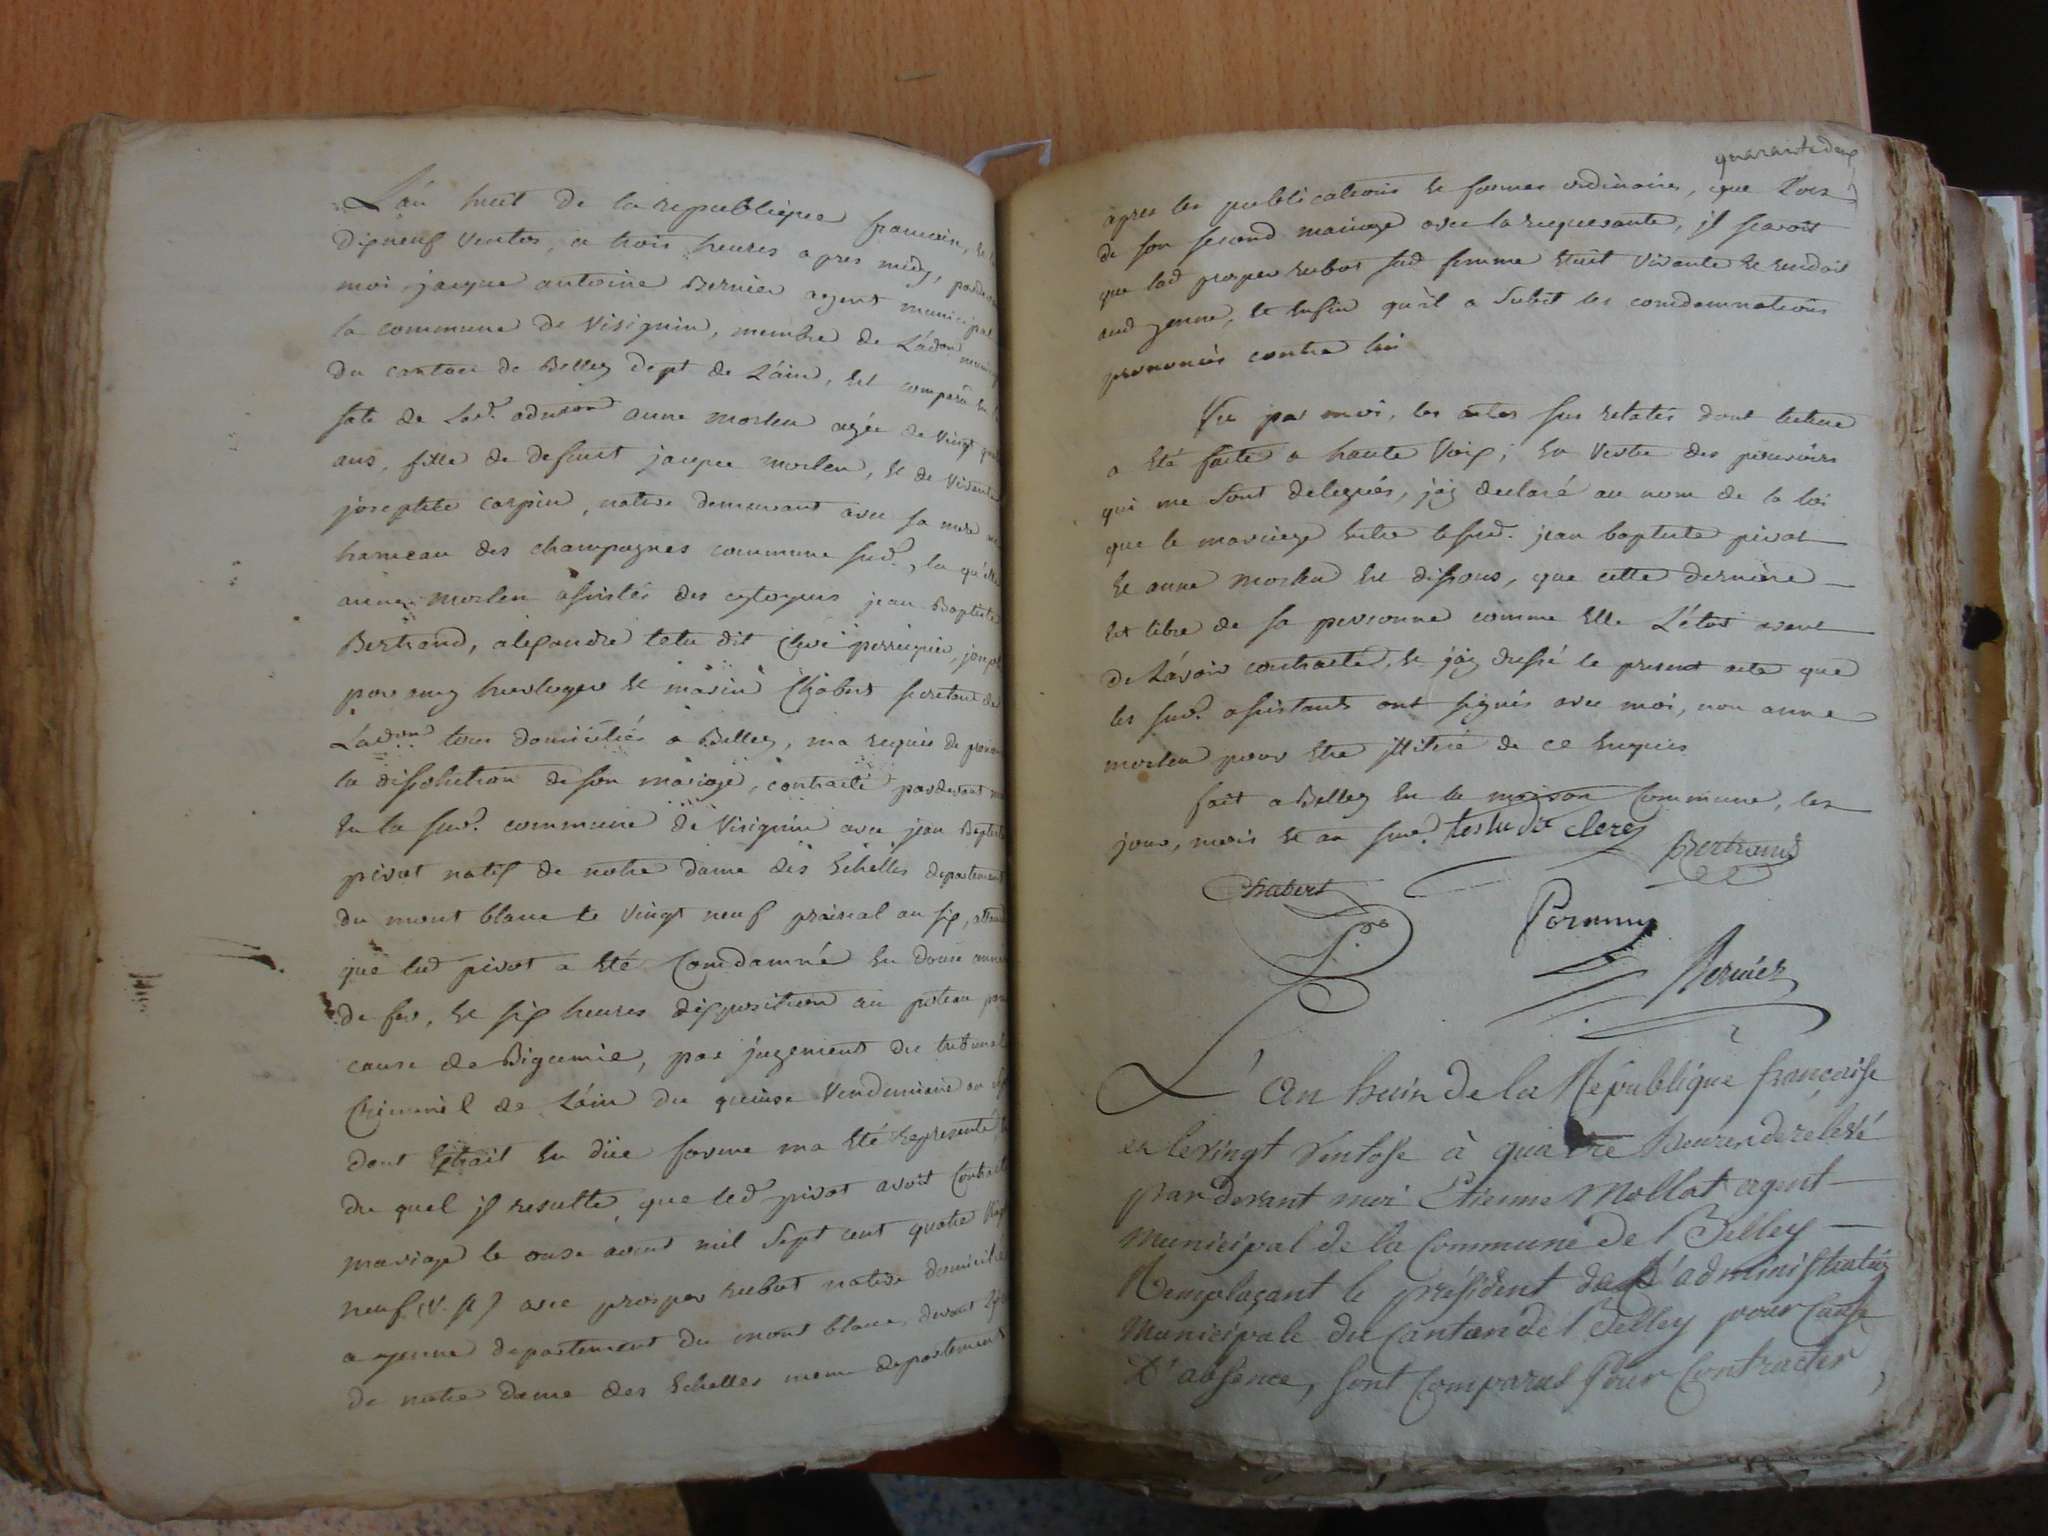 L'an huit de la republique francaise, et le
dixneuf Ventos, a trois heures apres midy, pardevant
moi jacque antoine Bernier agent municipal
la commune de Visignin, membre de L'adon munic
du canton de Belley dept de L'ain, est comparu en la
sale de lad. admon anne morlen agée de vingt
ans, fille de defunt jacque morlen, et de vivante
josephte carpin, native demeurant avec sa mere au
hameau des champagnes commune sud., la qu'elle
anne morlen assistée des cytoyens jean Baptiste
Bertrand, alexandre tetu dit Cleré perruquier, joseph
pornuy horloger et marin Chabert secretaire de
L'adon tous domiciliés a Belley, ma requis de prononcer
la dissolution de son mariage, contracté pardevant moi
en la sud. commune de Visignin avec jean Baptiste
pivot natif de notre dame des Echelles departement
du mont blanc le vingt neuf prairial an six, attendu
que led pivot a été Comdamné en douse années
de fer, et six heures d'exposition au poteau pour
cause de Bigamie, par jugement du tribunal
Criminel de L'ain du quinse Vendemiaire an
dont Extrait en düe forme ma été representé,
du quel jl resulte, que led pivot avoit Contracté
mariage le onse avril mil sept cent quatre vingt
neuf (V. St) avec prosper rubat native domiciliée
a yenne departement du mont blanc, devant
de notre dame des Echelles meme departement
quarante deux
apres les publications et formes ordinaires, que lors
de son second mariage avec la requerante, jl savoit
que lad prosper rubat sad femme etoit vivante et residoit
aud yenne, et enfin qu'il a subit les comdamnations
prononcés contre lui
Vu par moi, les actes sus relatés dont lecture
a été faite a haute Voix; en Vertu des pouvoirs
qui me sont delegués, j'ay declaré au nom de la loi
que le mariage entre lesud. jean baptiste pivot
et anne morlen est dissous, que cette derniere
est libre de sa personne comme elle L'étoit avant
de L'avoir contracté, et j'ay dressé le present acte que
les sud. assistants ont signés avec moi, non anne
morlen pour etre jlliteré de ce enquis
fait a Belley en la maison Commune, les
jour, mois et an sud. testu dit clerez
Bertrand
Chabert
Pornuy
Bernier
L'an huin de la Republique francaise
et le vingt Ventosse à quatre heures de rélévé
par devant moi Etienne Mollat agent
Municipal de la Commune de Belley
Remplaçant le président de L'administration
Municipale du Canton de Belley pour Cause
D'absence, sont Comparus Pour Contracter